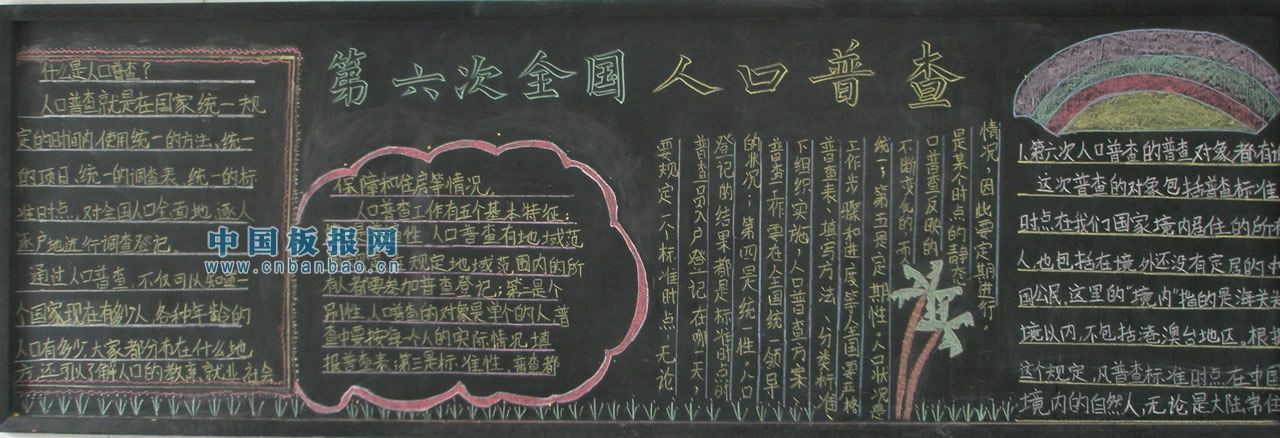 第六次全国人口普查
什么是人口普查?
人口普查就是在国家统一规
定的时间内,使用统一的方法、统一
的项目、统一的调查表、统一的标
准时点,对全国人口全面地、逐人
逐户地进行调查登记。
通过人口普查,不仅可以知道一
个国家现在有多少人、各种年龄的
人口有多少,大家都分布在什么地
方,还可以了解人口的教育、就业、社会
保障和住房等情况。
人口普查工作有五个基本特征:
性,人口普查有地域范
规定地域范围内的所
有人都要参加普查登记;第二是个
别性,人口普查的对象是单个的人,普
查中要按每个人的实际情况填
报普查表;第三是标准性,普查都
要规定一个标准时点,无论
普查员入户登记在哪一天,
登记的结果都是标准时点所
的状况;第四是统一性,人口
普查工作,要在全国统一领导
下组织实施,人口普查方案、
普查表、填写方法、分类标准、
工作步骤和进度等全国要严格
统一;第五是定期性,人口状况是
不断变化的,而
口普查反映的
是某个时点的静态
情况,因此要定期进行。
1.第六次人口普查的普查对象都有
这次普查的对象包括普查标准
时点在我们国家境内居住的所有
人,也包括在境外还没有定居的中
国公民,这里的“境内”指的是海关
境以内,不包括港澳台地区。根据
这个规定,凡普查标准时点在中国
境内的自然人,无论是大陆常住
中国板报网
www.cnbanbao.cn